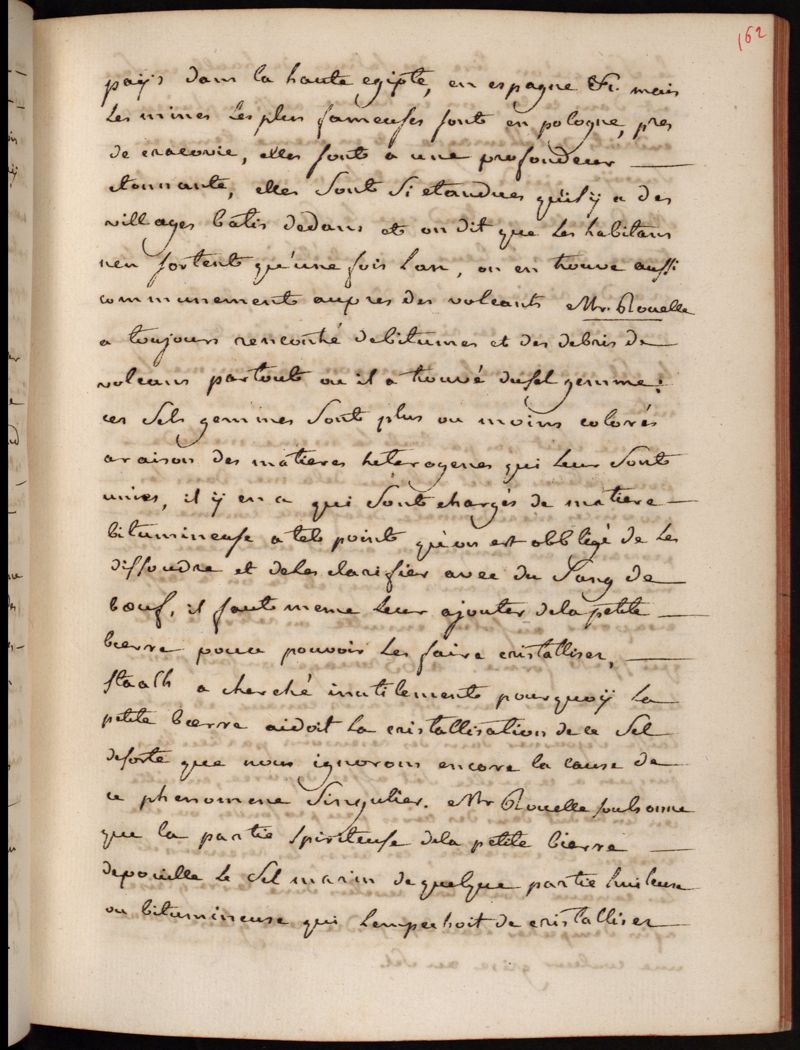 162
pays dans la haute egipte, en espagne &c. mais
les mines les plus fameuses sont en pologne, pres
de cracovie, elles sont a une profondeur
etonnante, elles sont si etandues qu'il y a des
villages batis dedans et on dit que les habitans
n'en sortent qu'une fois l'an, on en trouve aussi
communement aupres des volcants Mr. Rouelle
a toujours rencontré debitumes et des debris de
volcans partout ou il a trouvé du sel gemme;
ces sels gemmes sont plus ou moins colorés
a raison des matieres heterogenes qui leur sont
unies, il y en a qui sont chargés de matiere
bitumineuse a tels points qu'on est obbligé de les
dissoudre et de les clarifier avec du sang de
bœuf, il faut meme leur ajouter de la petite
bierre pour pouvoir les faire cristalliser,
staalh a cherché inutilement pourquoÿ la
petite bierre aidoit la cristallisation de ce sel
desorte que nous ignorons encore la cause de
ce phenomene singulier. Mr Rouelle soubsonne
que la partie spiriteuse de la petite bierre
depouille le sel marin de quelque partie huileuse
ou bitumineuse qui l'empechoit de cristalliser